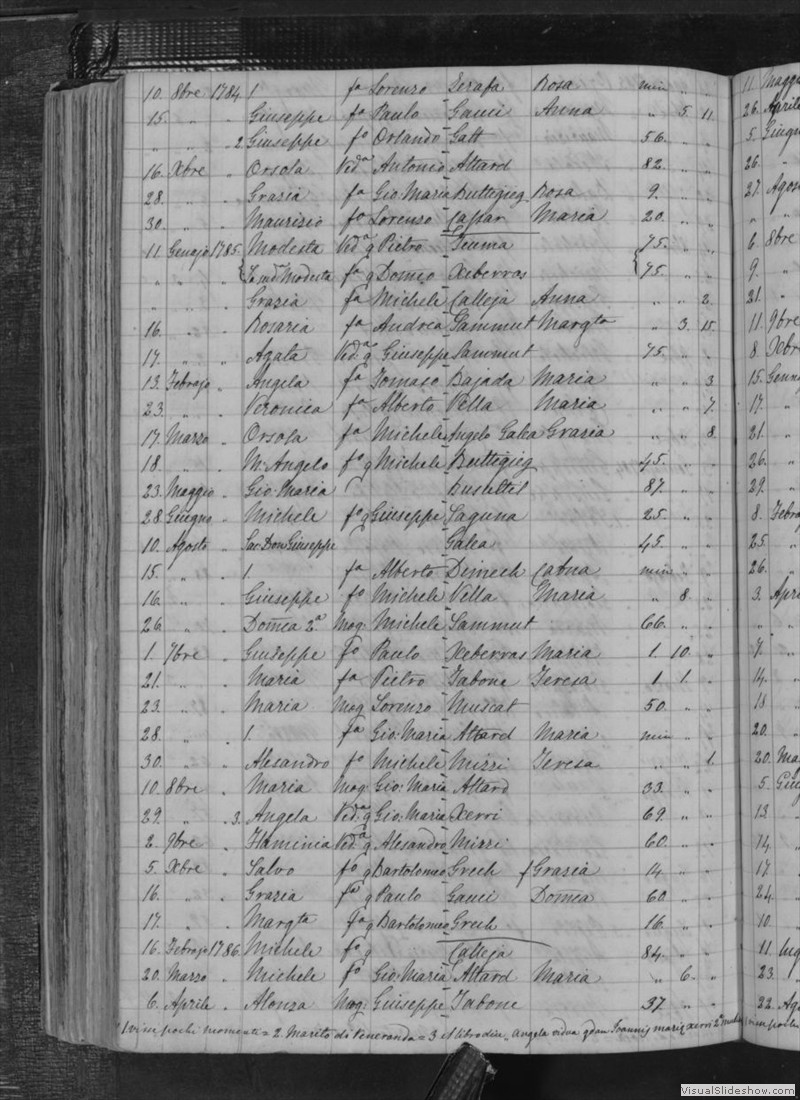 10. 8bre 1784 1 fa Lorenzo Zerafa Rosa min „ „
15. „ „ Giuseppe fo Paulo Gauci Anna „ 5. 11
„ „ 2 Giuseppe fo Orlando Gatt 56. „ „
16. Xbre „ Orsola Veda Antonio Attard 82. „ „
28. „ „ Grazia fa Gio: Maria Buttigieg Rosa 9. „ „
30. „ „ Maurizio fo Lorenzo Cassar Maria 20. „ „
11. Genajo 1785. Modesta Veda q Pietro Giuma 75. „ „
„ „ „ Modesta fa q Domco Xeberras 75. „ „
„ „ Grazia fa Michele Calleja Anna „ „ 2.
16. „ „ Rosaria fa Andrea Sammut Margta „ 3. 15.
17. „ „ Agata Veda q Giuseppe Sammut 75. „ „
13. Febrajo „ Angela fa Tomaso Bajada Maria „ „ 3
23. „ „ Veronica fa Alberto Vella Maria „ „ 7.
17. Marzo „ Orsola fa Michelangelo Galea Grazia „ „ 8.
18. „ „ M: Angelo fo q Michele Buttigieg 45. „ „
23. Maggio „ Gio: Maria Busuttil 87. „ „
28. Giugno „ Michele fo q Giuseppe Laguna 25. „ „
10. Agosto „ Sac: Don Giuseppe Galea 45. „ „
15. „ „ 1. fa Alberto Dimech Catna min „ „
16. „ „ Giuseppe fo Michele Vella Maria „ 8 „
26. „ „ Domca 2.a Mog: Michele Sammut 66. „ „
1. 7bre „ Giuseppe fo Paulo Xeberras Maria 1. 10. „
21. „ „ Maria fa Pietro Tabone Teresa 1 1. „
23. „ „ Maria Mog Lorenzo Muscat 50. „ „
28. „ „ 1. fa Gio: Maria Attard Maria min „ „
30. „ „ Alesandro fo Michele Mizzi Teresa „ „ 1.
10. 8bre „ Maria Mog: Gio: Maria Attard 33. „ „
29. „ „ 3. Angela Veda q Gio: Maria Xerri 69. „ „
2. 9bre „ Flaminia Veda q Alesandro Mizzi 60. „ „
5. Xbre „ Salvo fo q Bartolomeo Grech f Grazia 14 „ „
16. „ „ Grazia fa q Paulo Gauci Domca 60 „ „
17. „ „ Margta fa q Bartolomeo Grech 16. „ „
16. Febrajo 1786. Michele fo q Calleja 84. „ „
20. Marzo „ Michele fo Gio: Maria Attard Maria „ 6. „
6. Aprile „ Alonza Mog: Giuseppe Tabone 37 „ „
1 vixe pochi momenti = 2. Marito di Veneranda = 3 il libro dice, Angela vidua qdam Joannis mariæ xerri
11. Maggi
26. Aprile
5. Giugn
26. „
27. Agos
„ „
6. 8bre
9. „
21. „
11. 9bre
8. Xbre
15. Genn
17. „
21. „
26. „
29. „
8. Febra
25. „
26. „
3. Apri
„ „
7. „
14. „
18 „
20. „
20. Ma
5. Giug
13 „
14 „
17 „
24. „
10. „
11. Lug
23. „
22. Ag
1 vixe poch
VisualSlideshow.com